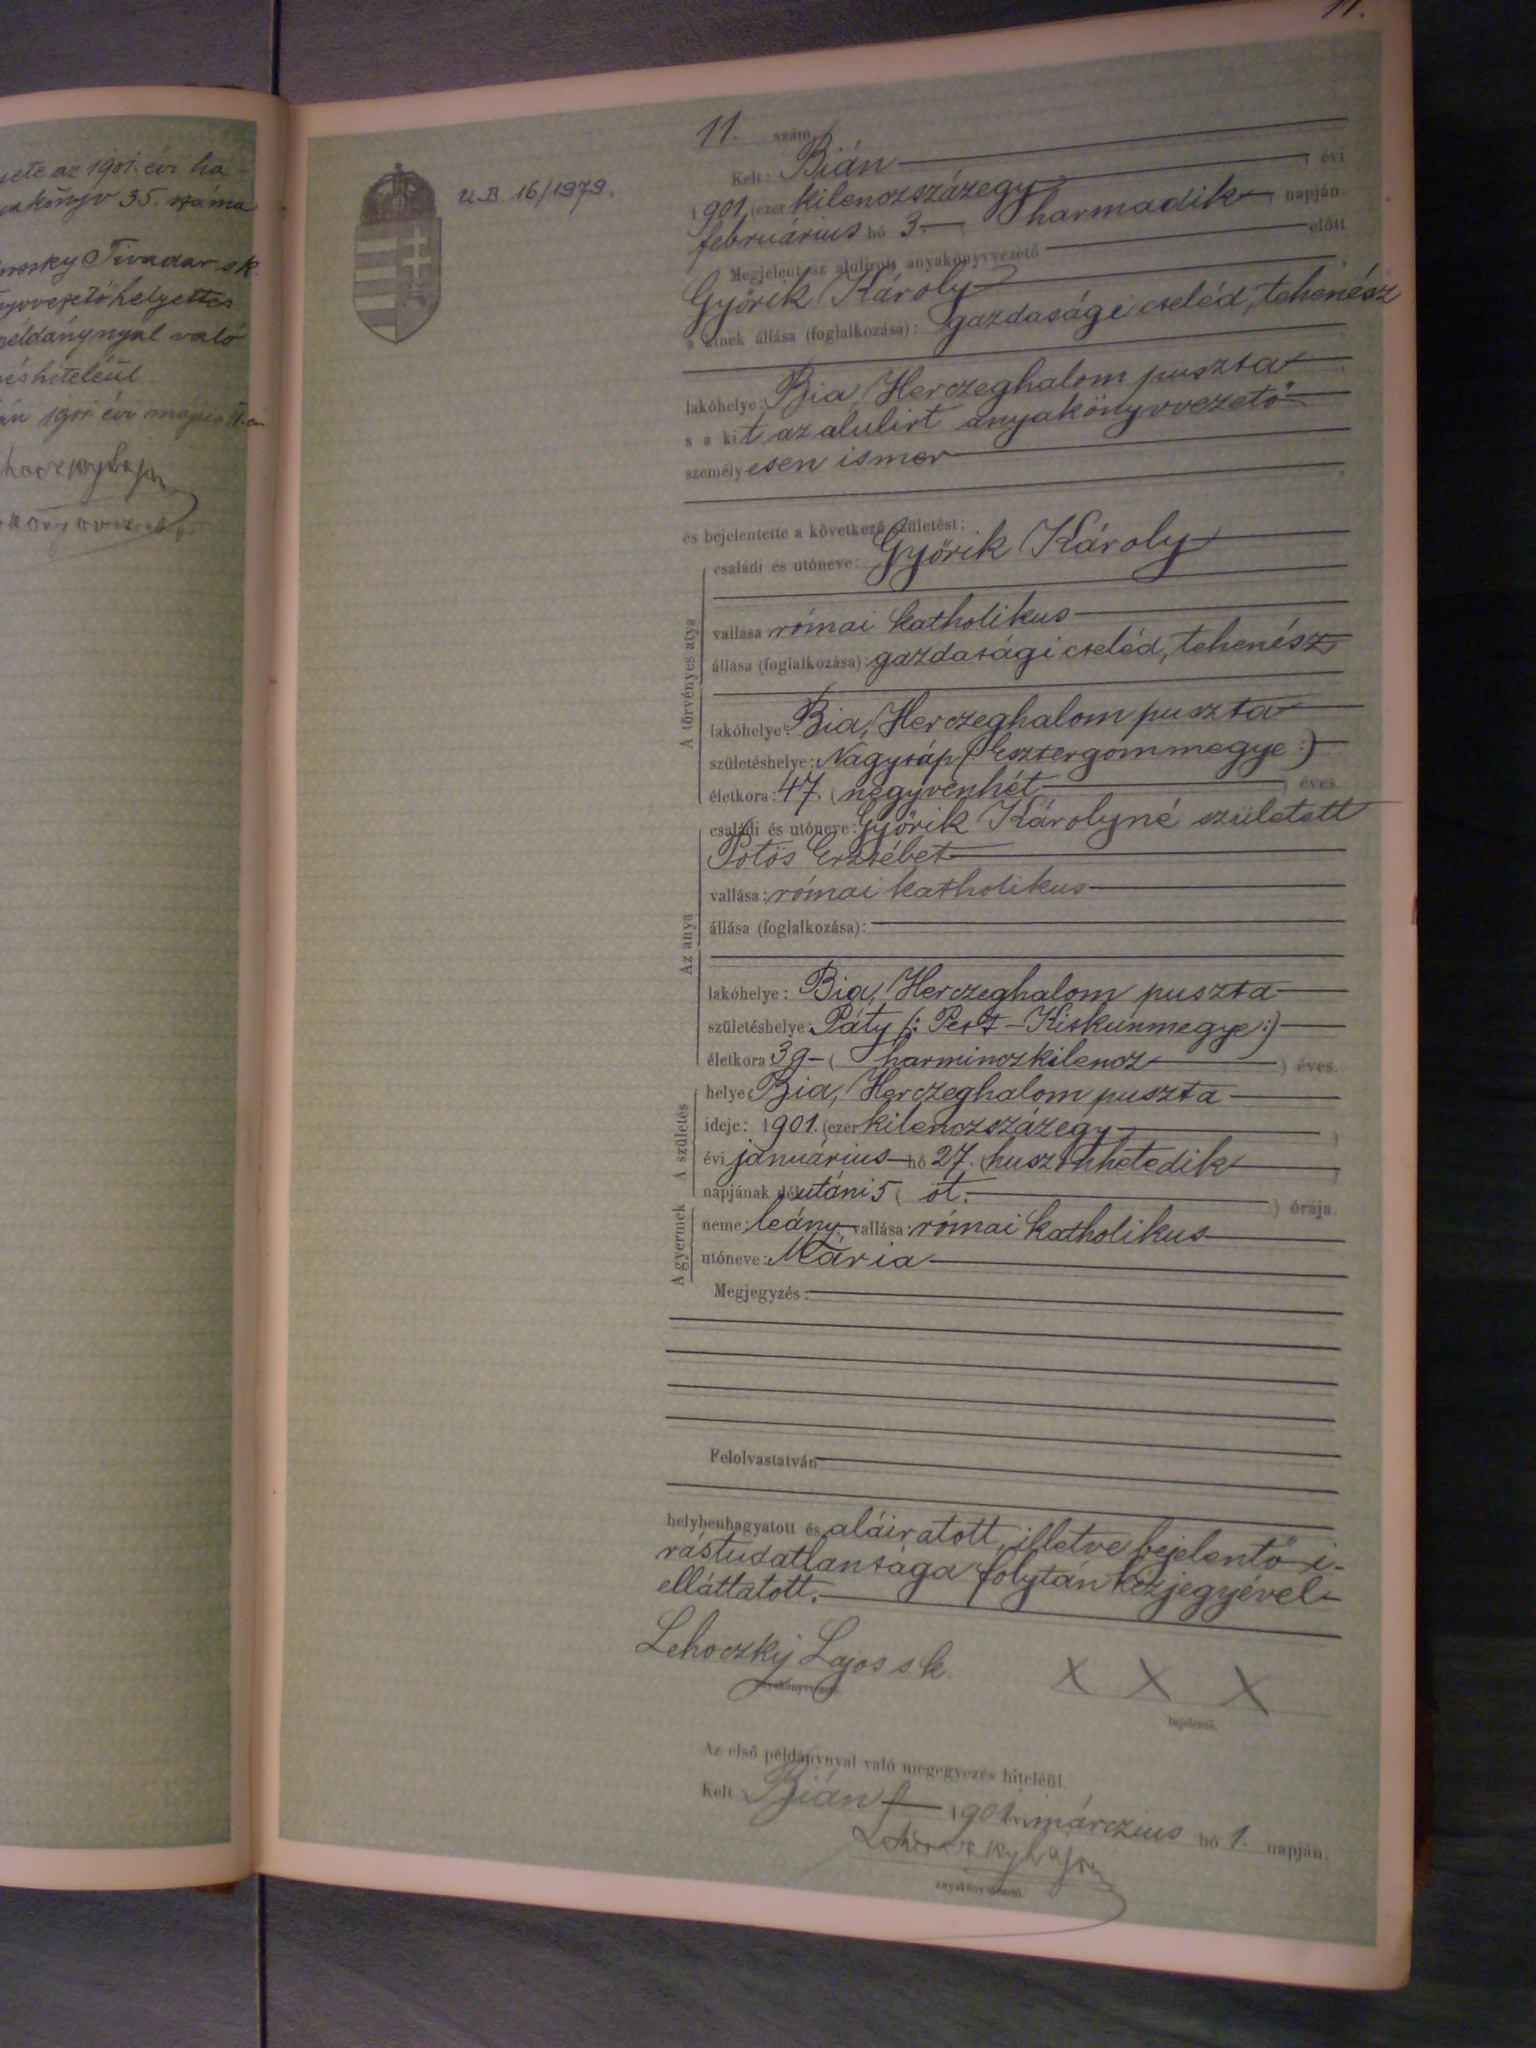 11.
ete az 1901. évi ha-
könyv 35. száma
Tivadar s.k.
helyettes
példánynyal való
hiteléül.
1901. évi május 11.
U.B. 16/1979.
11. szám.
Kelt: Bián évi
1901 (ezer kilenczszázegy
februárius hó 3. ( harmadik ) napján.
Megjelent az alulirott anyakönyvvezető előtt
Győrik Károly
a kinek állása (foglalkozása): gazdasági cseléd, tehenész
lakóhelye: Bia, Herczeghalom puszta
s a kit az alulirt anyakönyvvezető
személyesen ismer
és bejelentette a következő születést:
A törvényes atya
családi és utóneve: Győrik Károly
vallása római katholikus
állása (foglalkozása): gazdasági cseléd, tehenész
lakóhelye: Bia, Herczeghalom puszta
születéshelye: Nagysáp (: Esztergommegye :)
életkora: 47. ( negyvenhét ) éves.
Az anya
családi és utóneve: Győrik Károlyné született
Pötös Erzsébet
vallása: római katholikus
állása (foglalkozása):
lakóhelye: Bia, Herczeghalom puszta
születéshelye: Páty (: Pest-Kiskunmegye :)
életkora 39 ( harminczkilencz ) éves.
A születés
helye Bia, Herczeghalom puszta
ideje: 1901. (ezer kilenczszázegy )
évi januárius hó 27. ( huszonhetedik )
napjának délutáni 5 ( öt. ) órája.
A gyermek
neme: leány, vallása: római katholikus
utóneve: Mária
Megjegyzés:
Felolvastatván
helybenhagyatott és aláiratott, illetve bejelentő i-
rástudatlansága folytán kézjegyével
elláttatott.
Lehoczky Lajos s.k.
anyakönyvvezető.
X X X
bejelentő.
Az első példánynyal való megegyezés hiteléül.
Kelt Bián 1901 évi márczius hó 1. napján.
Lehoczky Lajos
anyakönyvvezető.